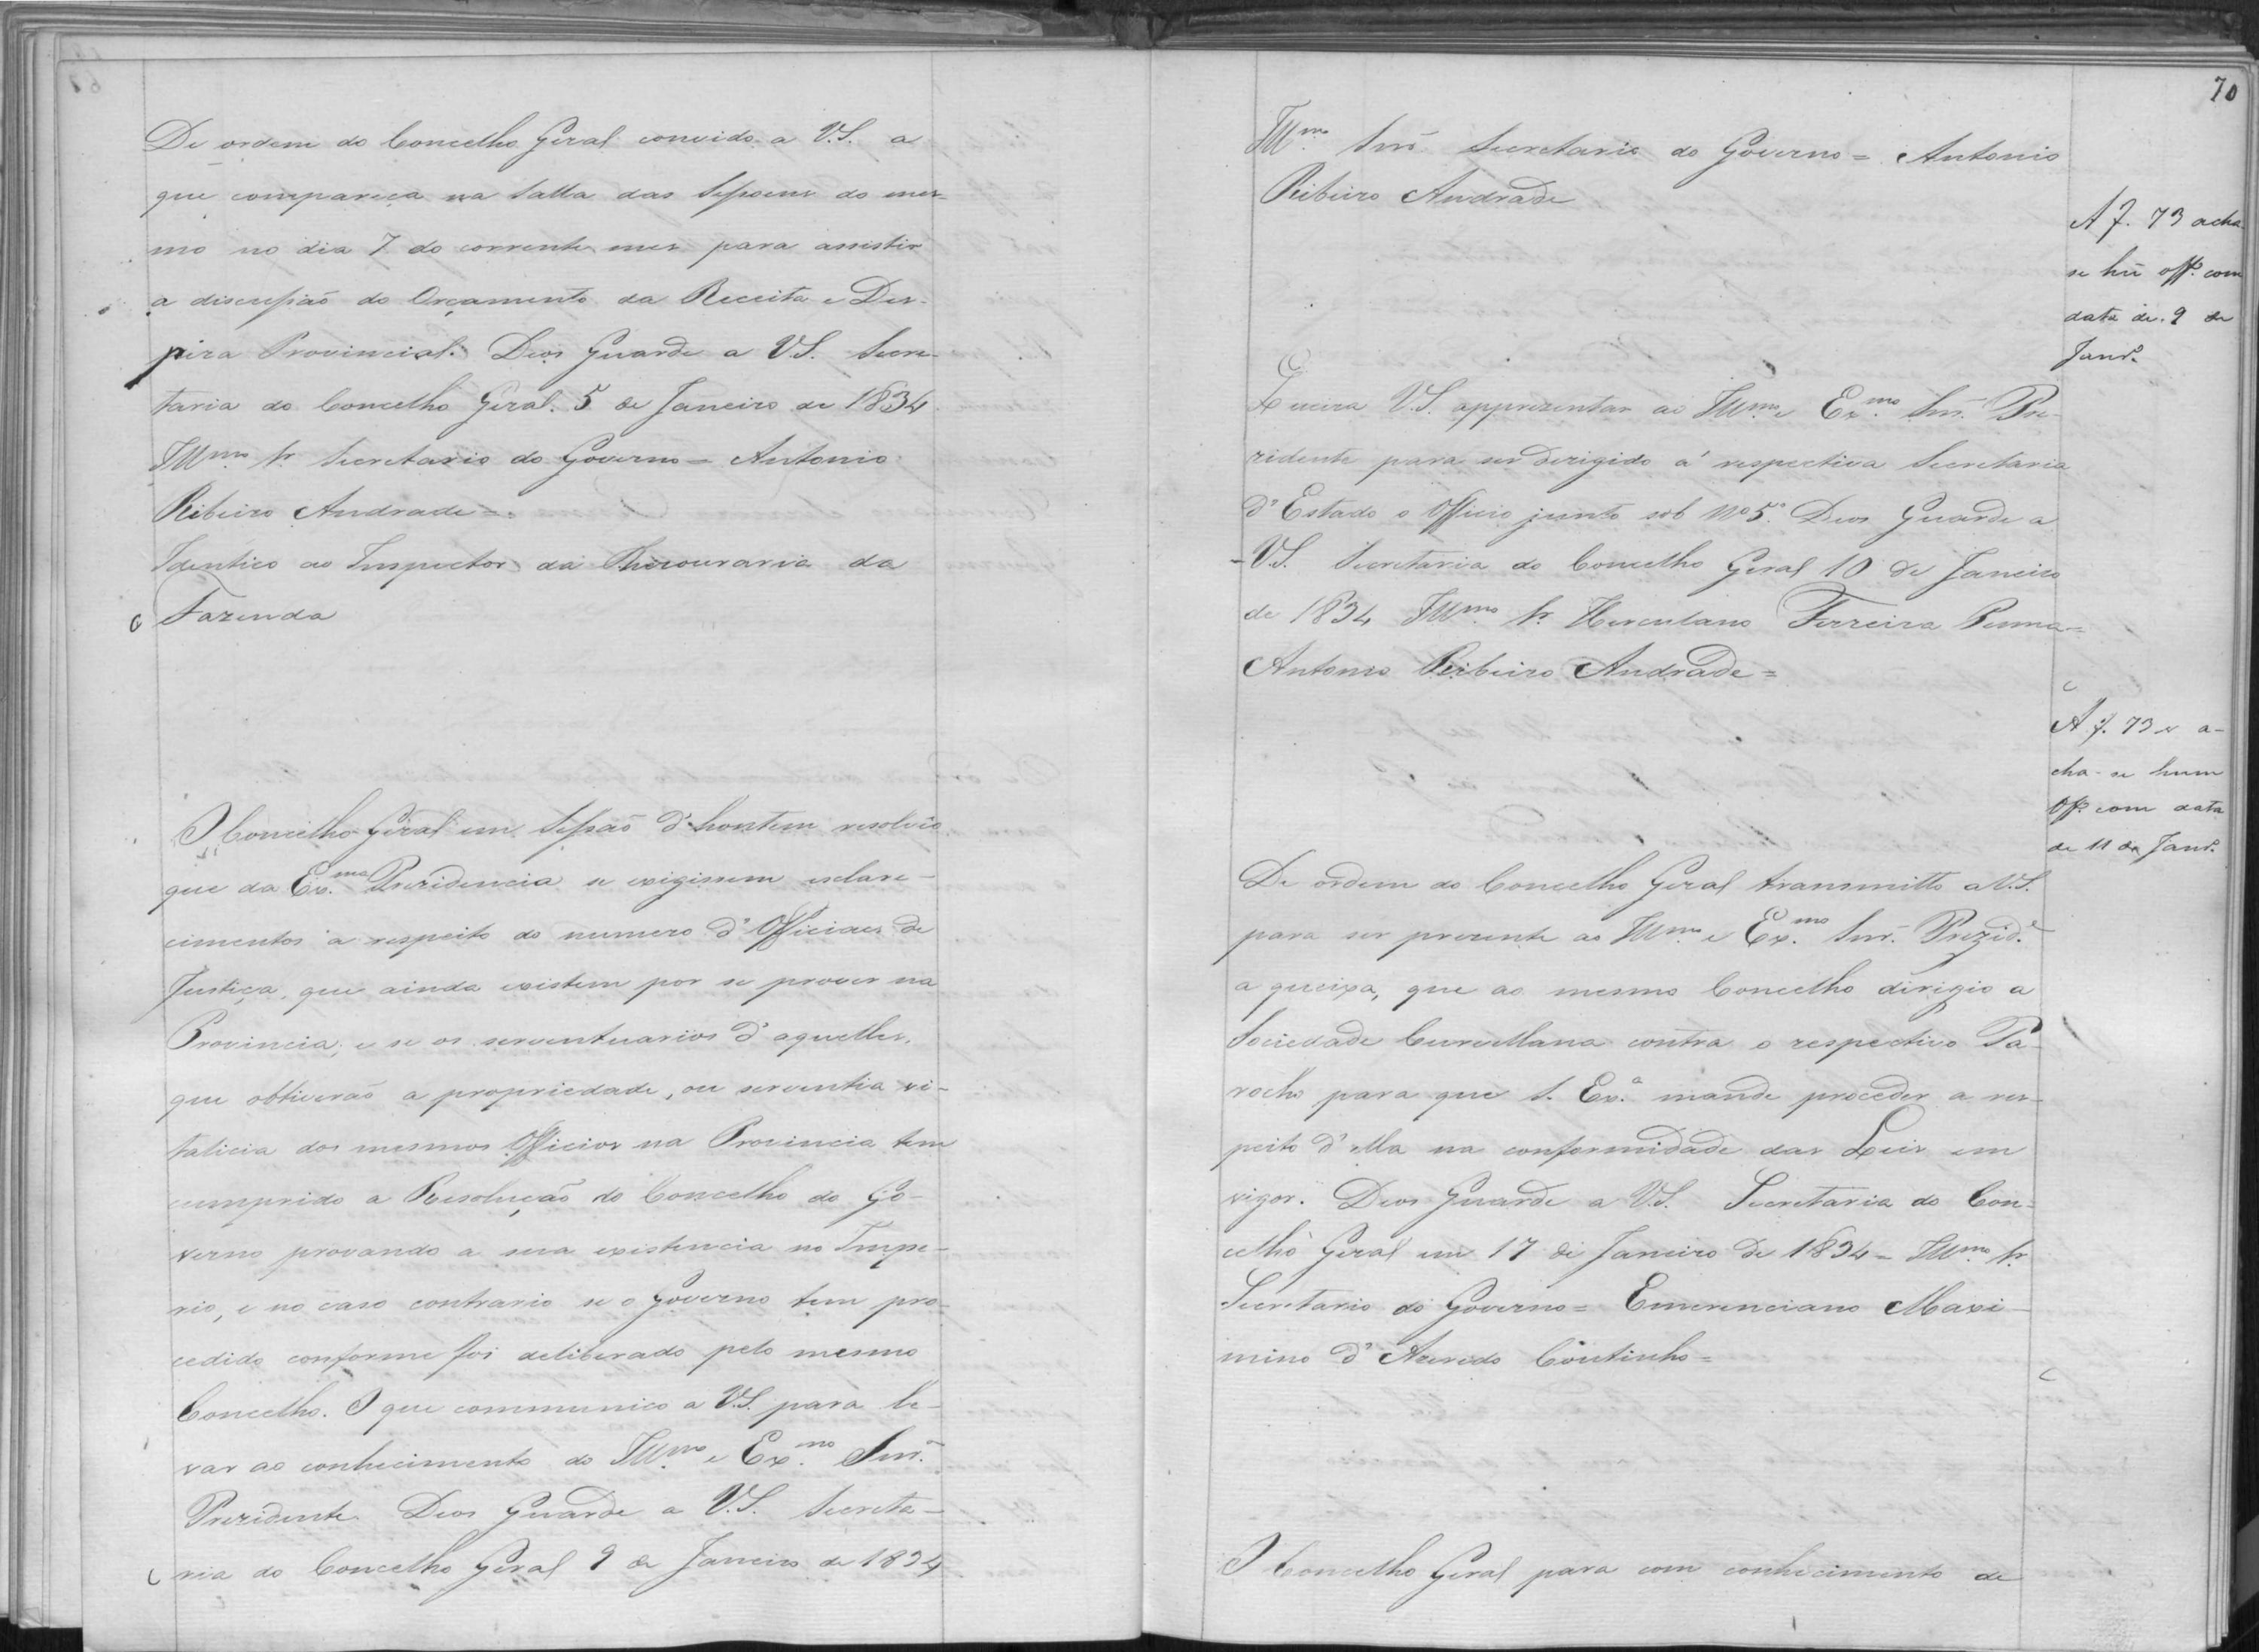 De ordem do Concelho Geral convido a V.S. a
que compareça na Salla das Sessoens do mes-
mo no dia 7 do corrente mes para assistir
a discussaõ do Orçamento da Receita e Des-
peza Provincial. Deos Guarde a V.S. Secre-
taria do Concelho Geral. 5 de Janeiro de 1834
Illmo. Sr. Secretario do Governo = Antonio
Ribeiro Andrade =
Identico ao Inspector da Thezouraria da
Fazenda
O Concelho Geral em Sessaõ d'hontem resolveo
que da Exma. Prezidencia se exigissem esclare-
cimentos a respeito do numero d'Officiaes de
Justiça, que ainda existem por se prover na
Provincia, e se os serventuarios d'aquelles,
que obtiveraõ a propriedade, ou serventia vi-
talicia dos mesmos Officios na Provincia tem
cumprido a Resoluçaõ do Concelho do Go-
verno provando a sua existencia no Impe-
rio, e no caso contrario se o Governo tem pro-
cedido conforme foi deliberado pelo mesmo
Concelho. O que communico a V.S. para le-
var ao conhecimento do Illmo. e Exmo. Snr.
Prezidente. Deos Guarde a V.S. Secreta-
ria do Concelho Geral 9 de Janeiro de 1834
70
Illmo. Snr. Secretario do Governo = Antonio
Ribeiro Andrade
A f. 73 acha
se hũ offo. com
data de 9 de
Janro.
Queira V.S. apprezentar ao Illmo. e Exmo. Snr. Pre-
zidente para ser dirigido á respectiva Secretaria
d'Estado o Officio junto sob No 5. Deos Guarde a
V.S. Secretaria do Concelho Geral 10 de Janeiro
de 1834 Illmo. Sr. Herculano Ferreira Penna =
Antonio Ribeiro Andrade =
A f. 73 v a-
cha-se hum
Offo. com data
de 11 de Janro.
De ordem do Concelho Geral transmitto a V.S.
para ser prezente ao Illmo. e Exmo. Snr. Prezide.
a queixa, que ao mesmo Concelho dirigio a
Sociedade Curvellana contra o respectivo Pa-
rocho para que S. Exa. mande proceder a res-
peito d'ella na conformidade das Leis em
vigor. Deos Guarde a V.S. Secretaria do Con-
celho Geral em 17 de Janeiro de 1834 = Illmo. Sr.
Secretario do Governo = Emerenciano Maxi-
mino d'Azeredo Coutinho =
O Concelho Geral para com conhecimento de